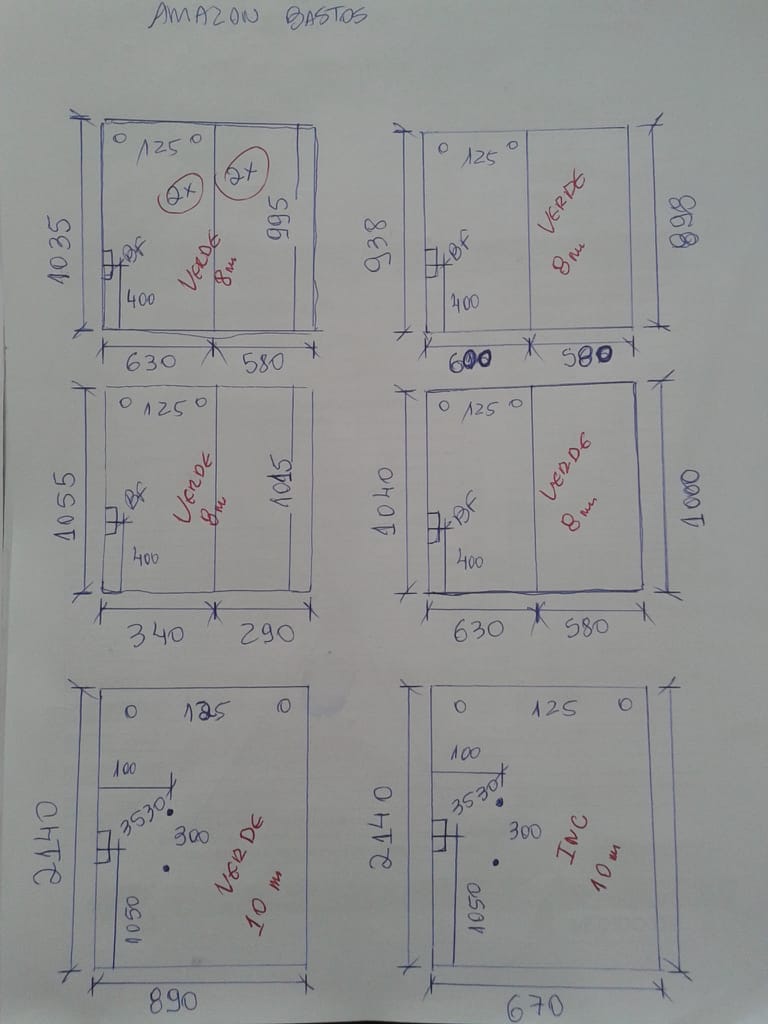 AMAZON BASTOS
125
2x
2x
1035
995
BF
VERDE
8m
400
630
580
125
VERDE
8m
938
898
BF
400
600
580
125
VERDE
8m
1055
1015
BF
400
340
290
125
VERDE
8m
1040
1000
BF
400
630
580
125
100
3530
300
2140
VERDE
10 m
1050
890
125
100
3530
300
2140
INC
10 m
1050
670